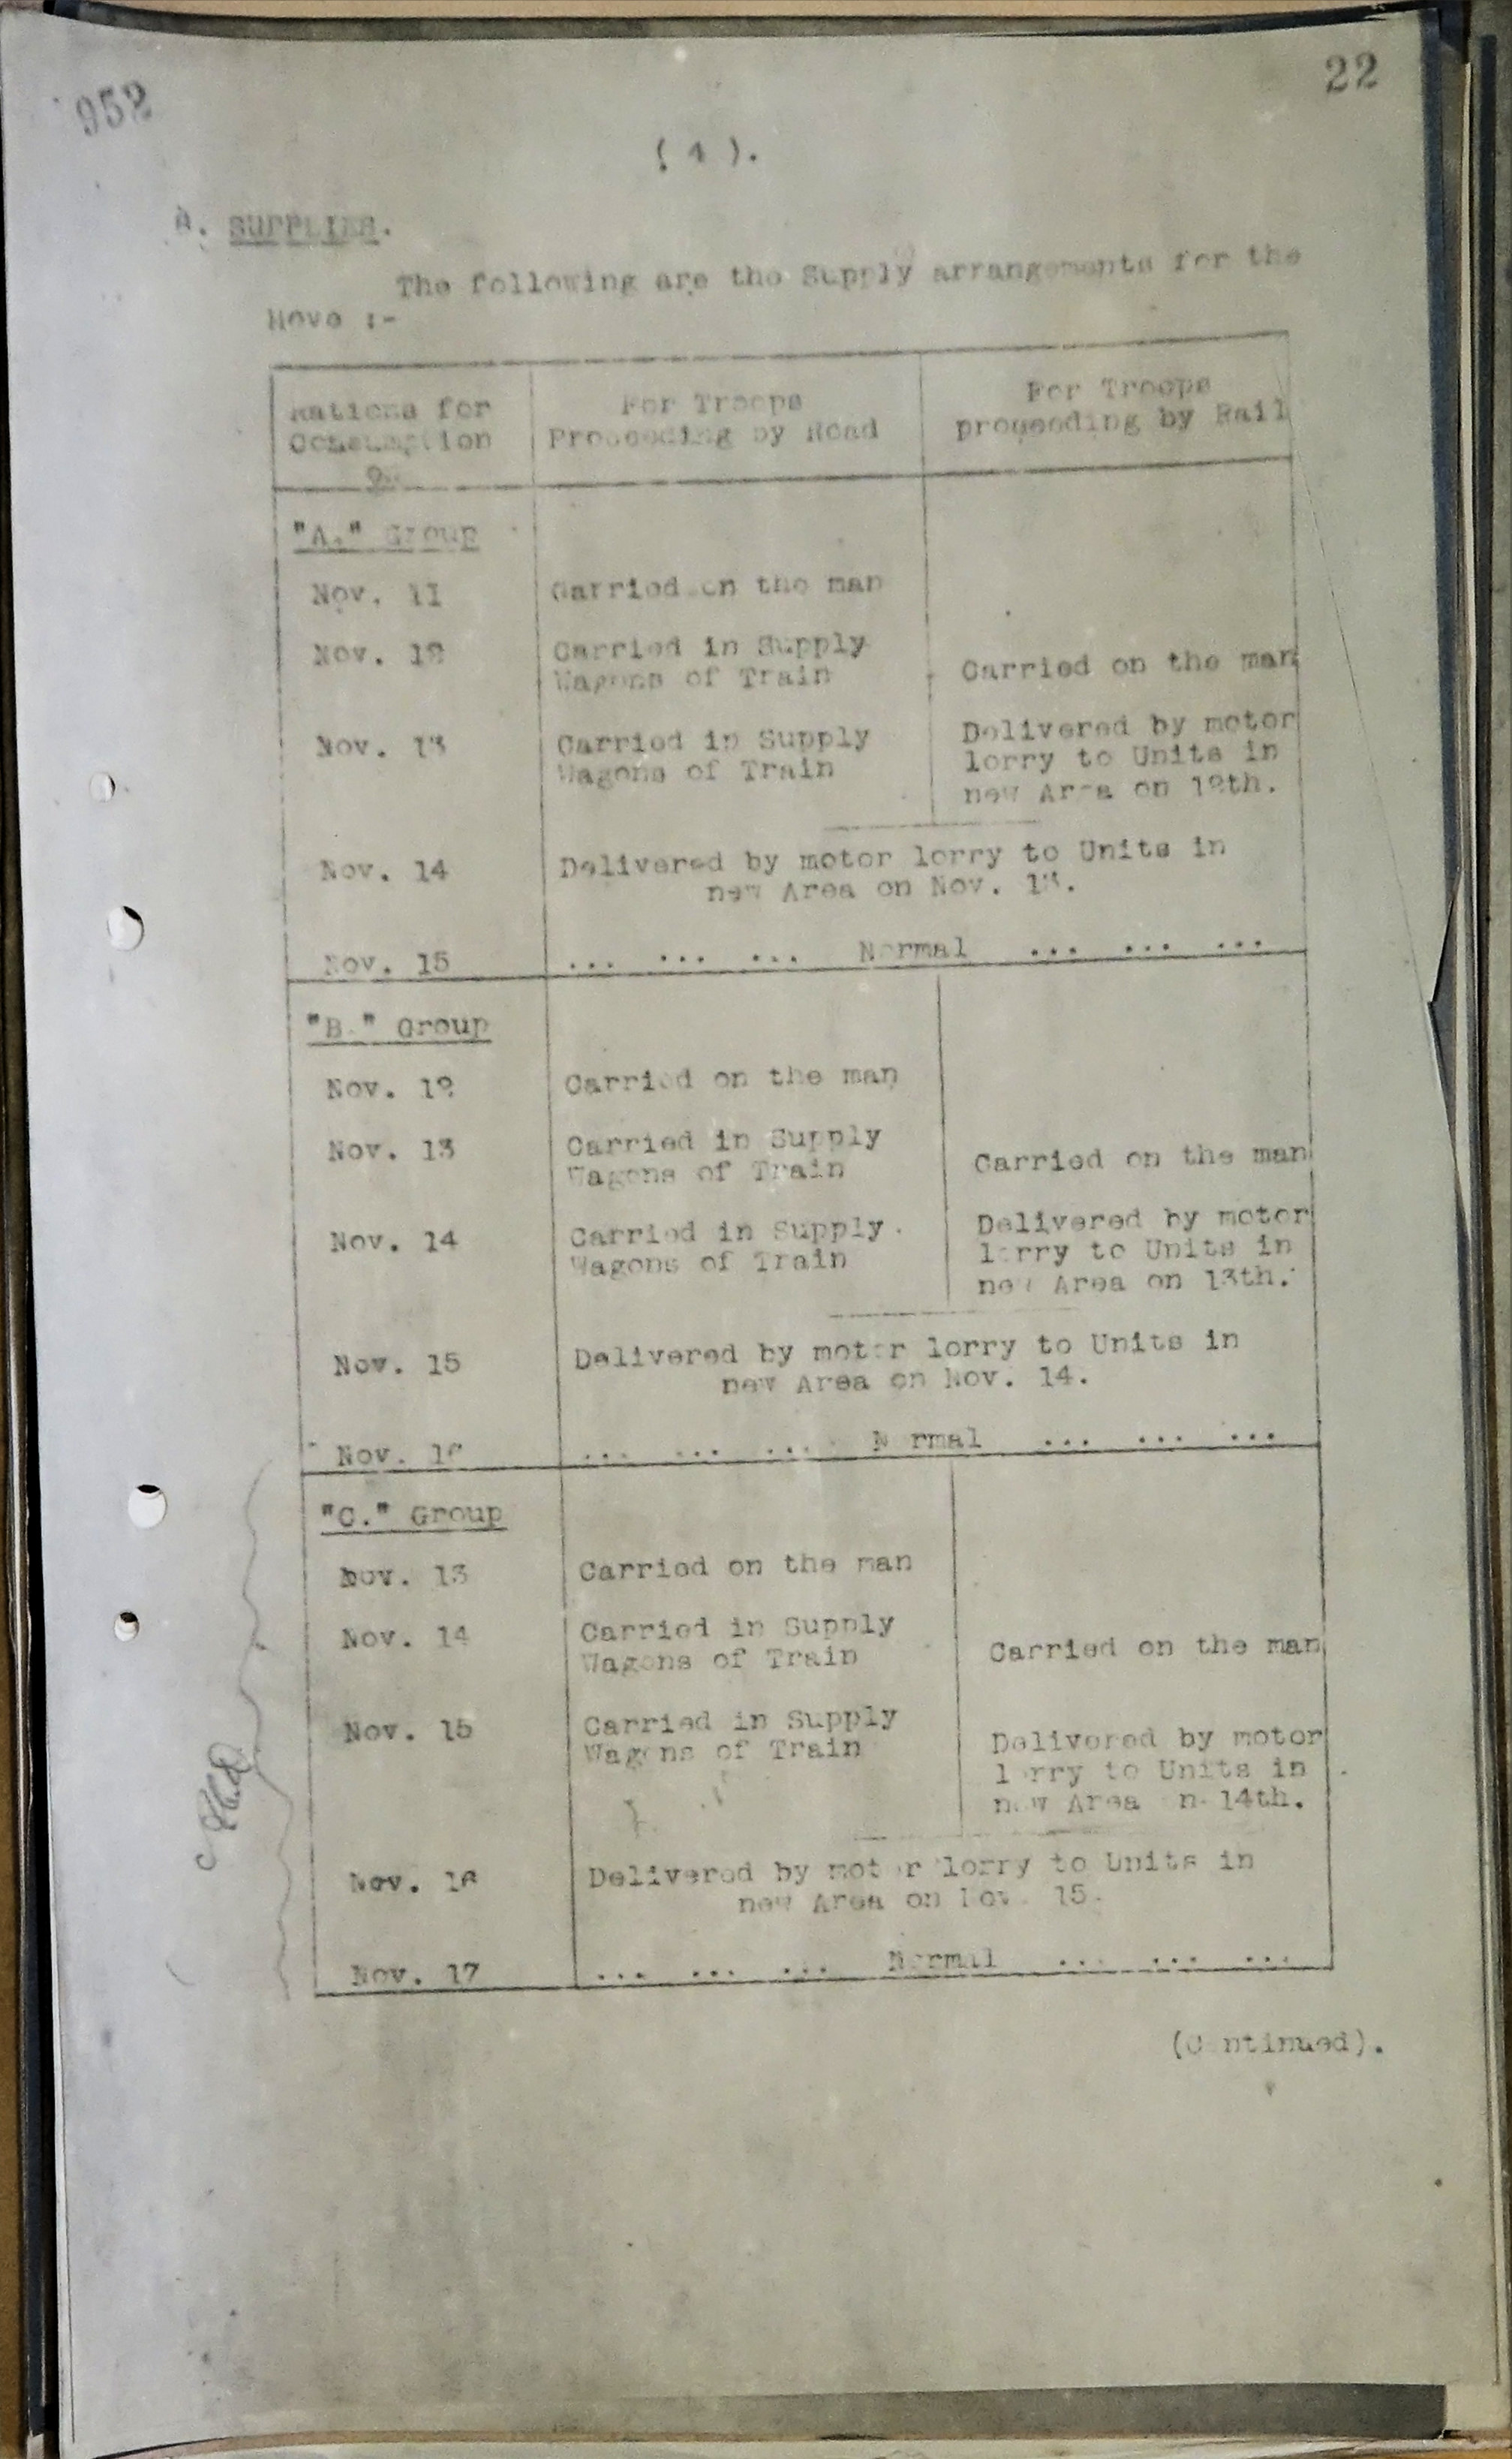 952
22
( 4 ).
SUPPLIES.
The following are the Supply arrangements for the
Move :-
Rations for
Consumption
On
For Troops
Proceeding by Road
For Troops
proceeding by Rail
"A." Group
Nov. 11
Carried on the man
Nov. 12
Carried in Supply
Wagons of Train
Carried on the man
Nov. 13
Carried in Supply
Wagons of Train
Delivered by motor
lorry to Units in
new Area on 12th.
Nov. 14
Delivered by motor lorry to Units in
new Area on Nov. 13.
Nov. 15
... ... ... Normal ... ... ...
"B." Group
Nov. 12
Carried on the man
Nov. 13
Carried in Supply
Wagons of Train
Carried on the man
Nov. 14
Carried in Supply
Wagons of Train
Delivered by motor
lorry to Units in
new Area on 13th.
Nov. 15
Delivered by motor lorry to Units in
new Area on Nov. 14.
Nov. 16
... ... ... Normal ... ... ...
"C." Group
Nov. 13
Carried on the man
Nov. 14
Carried in Supply
Wagons of Train
Carried on the man
Nov. 15
Carried in Supply
Wagons of Train
Delivered by motor
lorry to Units in
new Area on 14th.
Nov. 16
Delivered by motor lorry to Units in
new Area on Nov. 15.
Nov. 17
... ... ... Normal ... ... ...
(Continued).